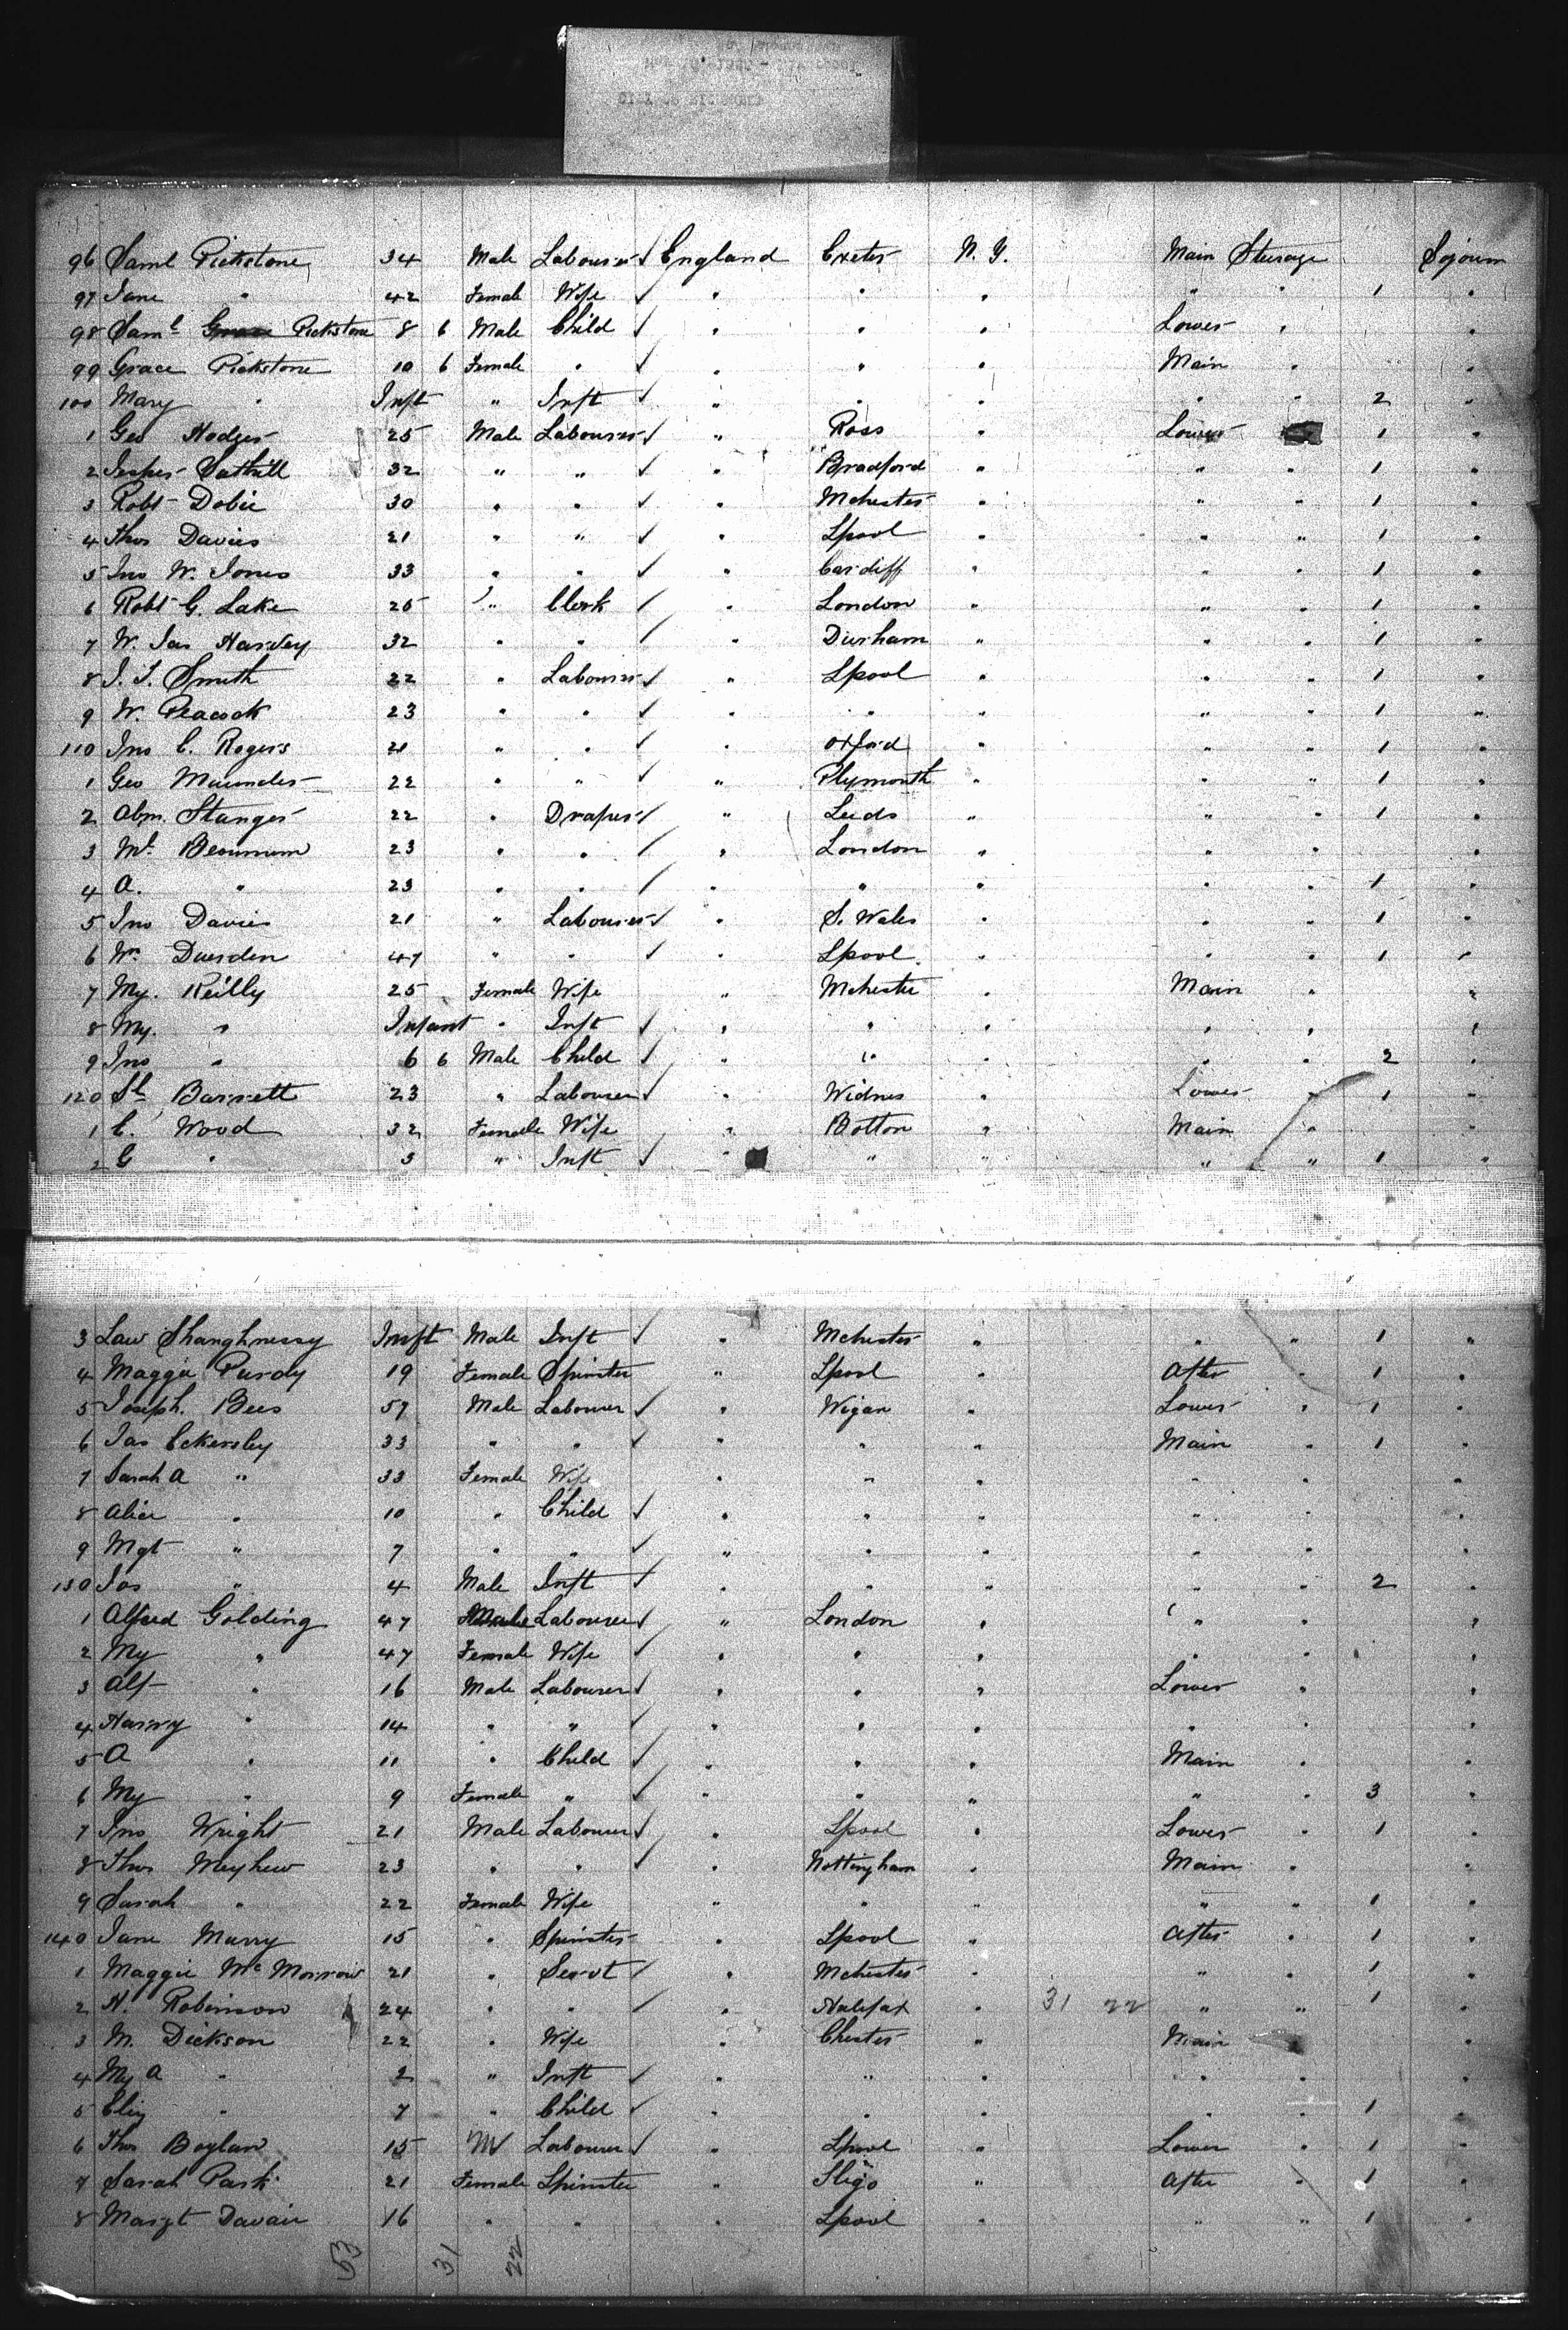 96 Saml Pickstone 34 Male Labourer England Exeter N. Y. Main Steerage Sojourn
97 Jane " 42 Female Wife " " " " " 1 "
98 Saml Pickstone 8 6 Male Child " " " Lower " "
99 Grace Pickstone 10 6 Female " " " " Main " "
100 Mary " Inft " Inft " " " " " 2 "
1 Geo Hodges 25 Male Labourer " Ross " Lower 1 "
2 32 " " " Bradford " " " 1 "
3 Robt Dobie 30 " " " Mchester " " " 1 "
4 Thos Davies 21 " " " Lpool " " " 1 "
5 Jno W. Jones 33 " " " Cardiff " " " 1 "
6 Robt G. Lake 25 " Clerk " London " " " 1 "
7 W. Jas Harvey 32 " " " Durham " " " 1 "
8 J. T. Smith 22 " Labourer " Lpool " " " 1 "
9 W. Peacock 23 " " " " " " " 1 "
110 Jno C. Rogers 21 " " " Oxford " " " 1 "
1 Geo Maunder 22 " " " Plymouth " " " 1 "
2 Abm. Stanger 22 " Draper " Leeds " " " 1 "
3 23 " " " London " " " "
4 A. " 23 " " " " " " " 1 "
5 Jno Davies 21 " Labourer " S. Wales " " " 1 "
6 Wm Duerden 47 " " " Lpool " " " 1 "
7 My. Reilly 25 Female Wife " Mchester " Main " "
8 My. " Infant " Inft " " " " " "
9 Jno " 6 6 Male Child " " " " " 2 "
120 Barrett 23 " Labourer " Widnes " Lower " 1 "
1 C. Wood 32 Female Wife " Bolton " Main " "
2 G " 3 " Inft " " " " " 1 "
3 Law Shanghnessy Inft Male Inft " Mchester " " " 1 "
4 Maggie Purdy 19 Female Spinster " Lpool " After " 1 "
5 Joseph Bees 57 Male Labourer " Wigan " Lower " 1 "
6 Jas Eckersley 33 " " " " " Main " 1 "
7 Sarah A " 33 Female Wife " " " " " "
8 Alice " 10 " Child " " " " " "
9 Mgt " 7 " " " " " " " "
130 Jas " 4 Male Inft " " " " " 2 "
1 Alfred Golding 47 Male Labourer " London " " "
2 My " 47 Female Wife " " " " "
3 Alf " 16 Male Labourer " " " Lower " "
4 Harry " 14 " " " " " " " "
5 A " 11 " Child " " " Main " "
6 My " 9 Female " " " " " " 3 "
7 Jno Wright 21 Male Labourer " Lpool " Lower " 1 "
8 Thos Meyhew 23 " " " Nottingham " Main " "
9 Sarah " 22 Female Wife " " " " " 1 "
140 Jane Murry 15 " Spinster " Lpool " After " 1 "
1 Maggie McMorrow 21 " Servt " Mchester " " " 1 "
2 H. Robinson 24 " " " Halifax " 31 22 " " 1 "
3 M. Dickson 22 " Wife " Chester " Main "
4 My A " 2 " Inft " " " " " "
5 Eliz " 7 " Child " " " " " 1 "
6 Thos Boylan 15 M Labourer " Lpool " Lower " 1 "
7 Sarah Park 21 Female Spinster " Sligo " After " 1 "
8 Margt 16 " " " Lpool " " " 1 "
53 31 22